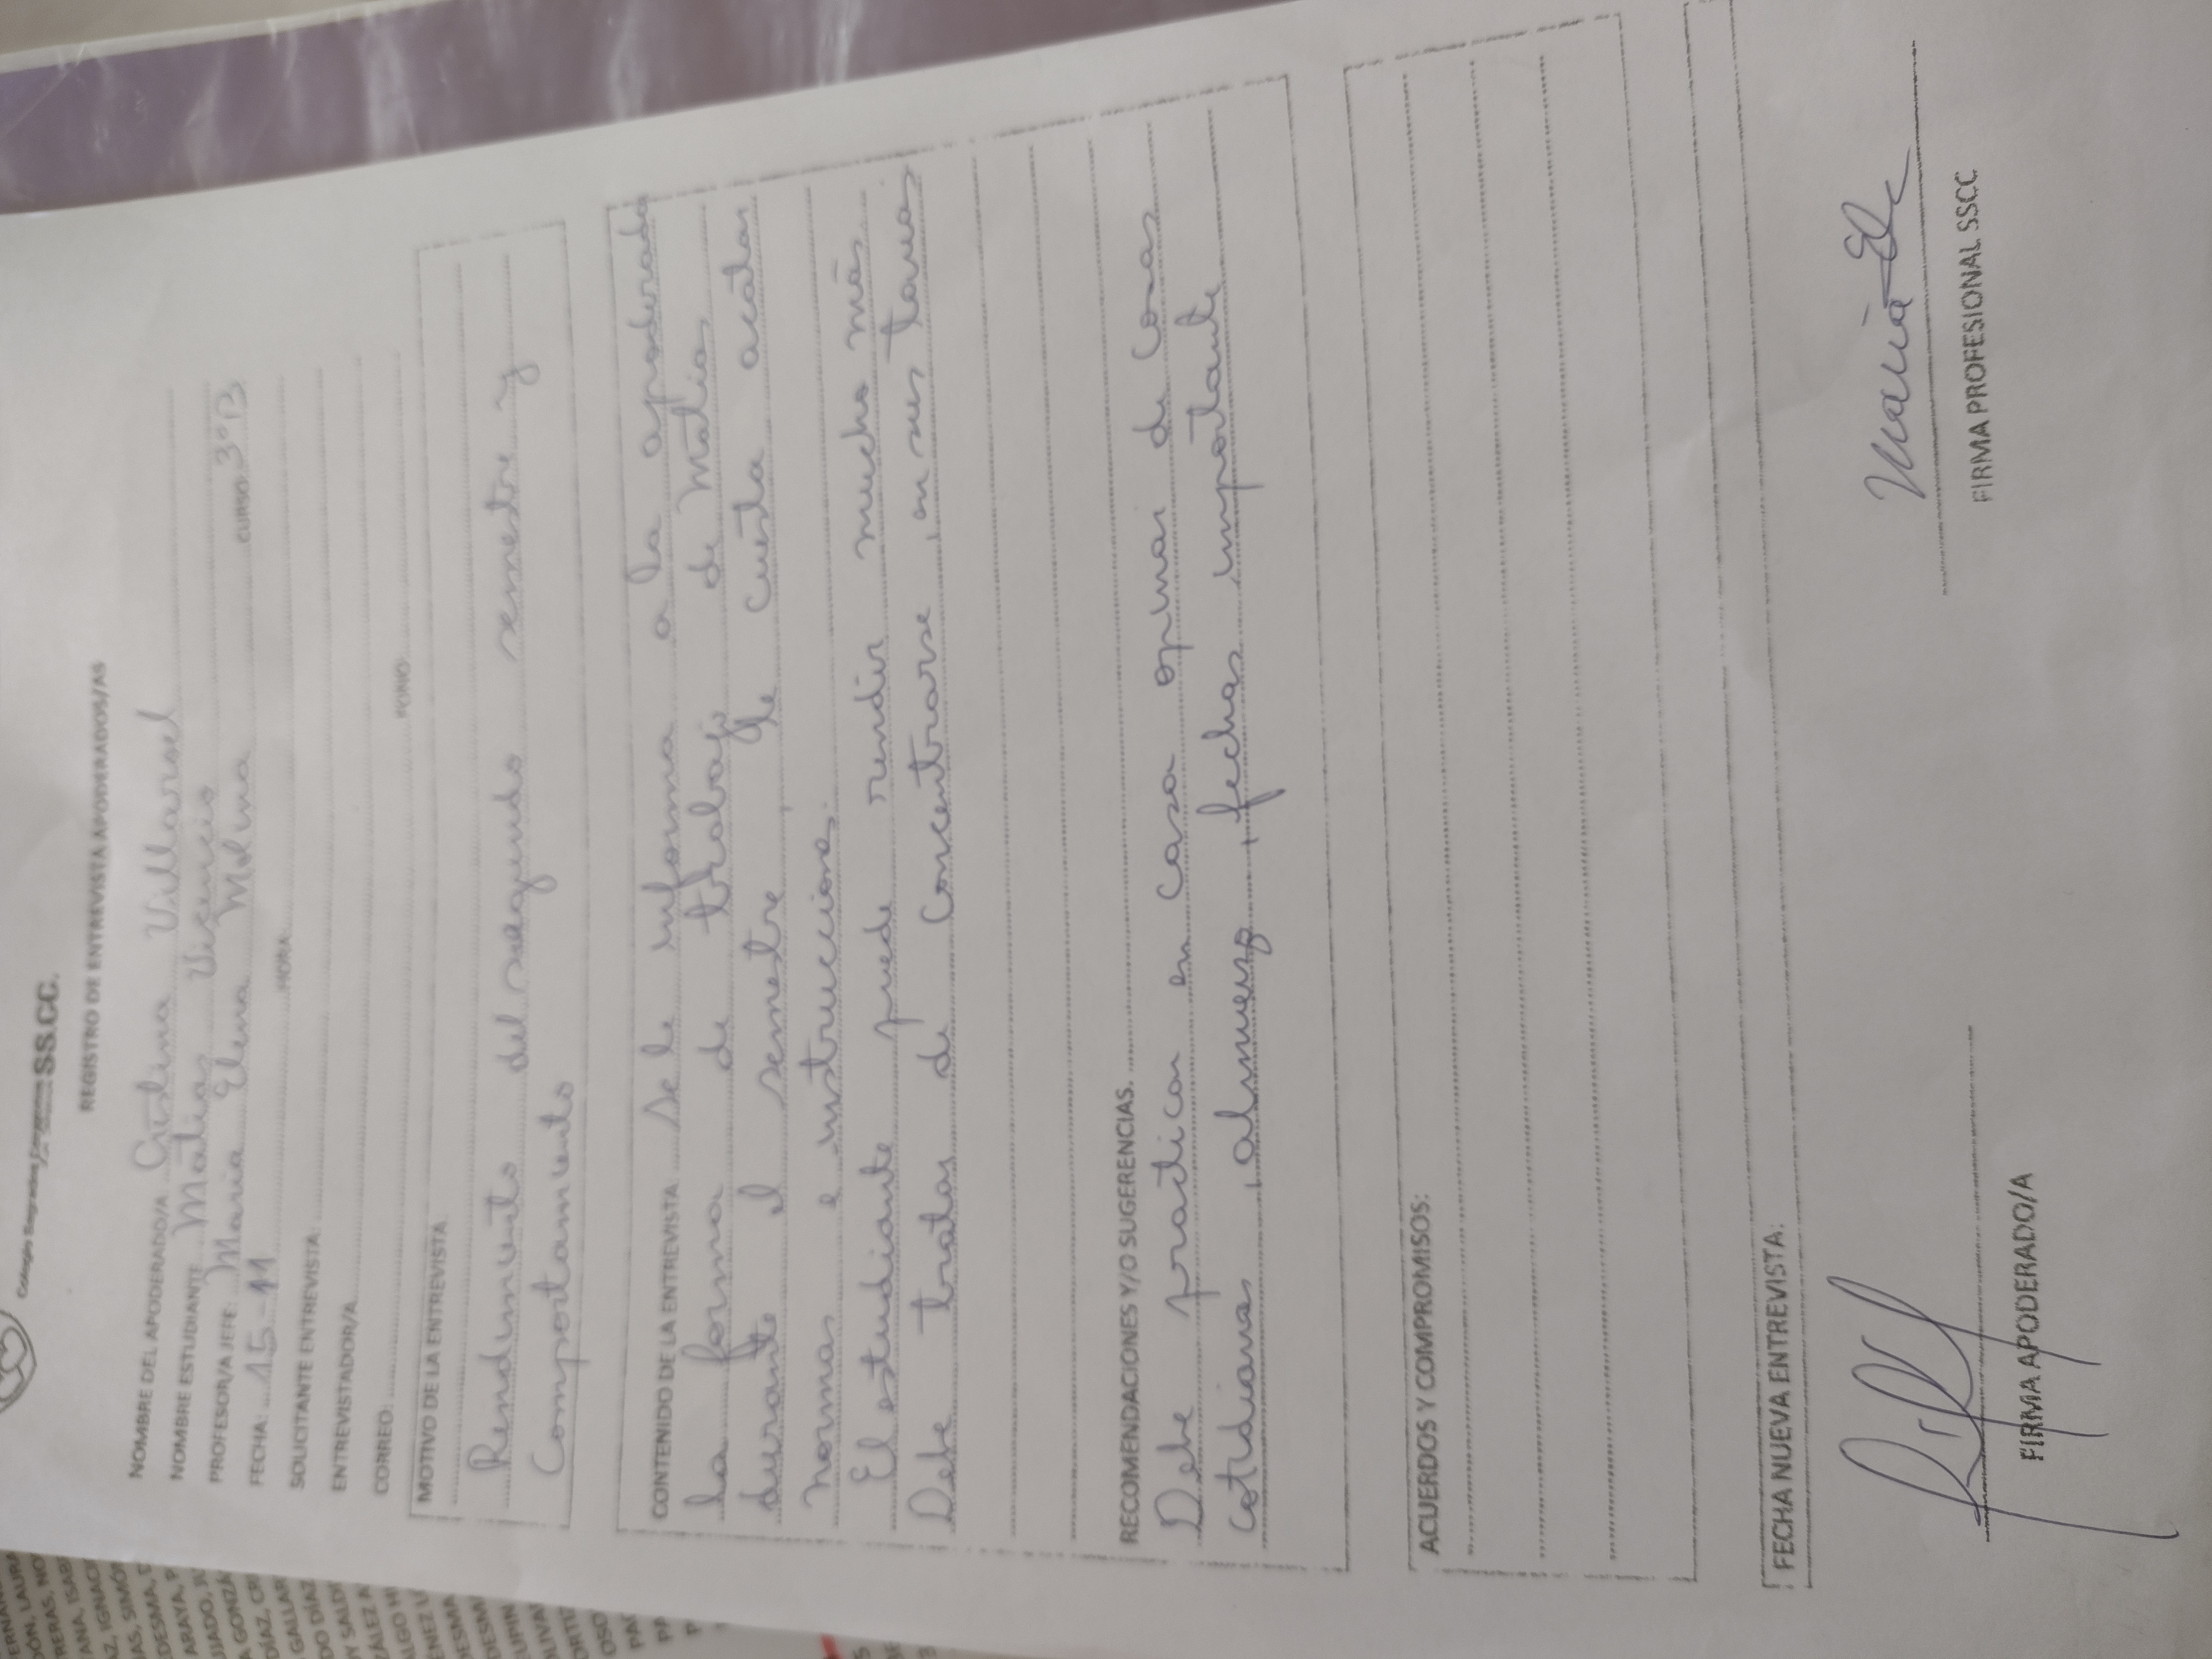 Colegio Sagrados SS.CC.
REGISTRO DE ENTREVISTA APODERADOS/AS
NOMBRE DEL APODERADO/A Cristina Villarroel
NOMBRE ESTUDIANTE Matias Vicencio
PROFESOR/A JEFE: Maria Elena Molina CURSO 3°B
FECHA: 15-11 HORA:
SOLICITANTE ENTREVISTA:
ENTREVISTADOR/A
CORREO: FONO:
MOTIVO DE LA ENTREVISTA
Rendimiento del segundo semestre y
Comportamiento
CONTENIDO DE LA ENTREVISTA se le informa a la apoderada
la forma de trabajo de Matias
durante el semestre, le cuesta acatar
normas e instrucciones.
El estudiante puede rendir mucho más.
Debe tratar de concentrarse, en sus tareas
RECOMENDACIONES Y/O SUGERENCIAS.
Debe practicar en casa opinar de cosas
cotidianas, almuerzo, fechas importante
ACUERDOS Y COMPROMISOS:
FECHA NUEVA ENTREVISTA:
FIRMA APODERADO/A
Maria
FIRMA PROFESIONAL SSCC